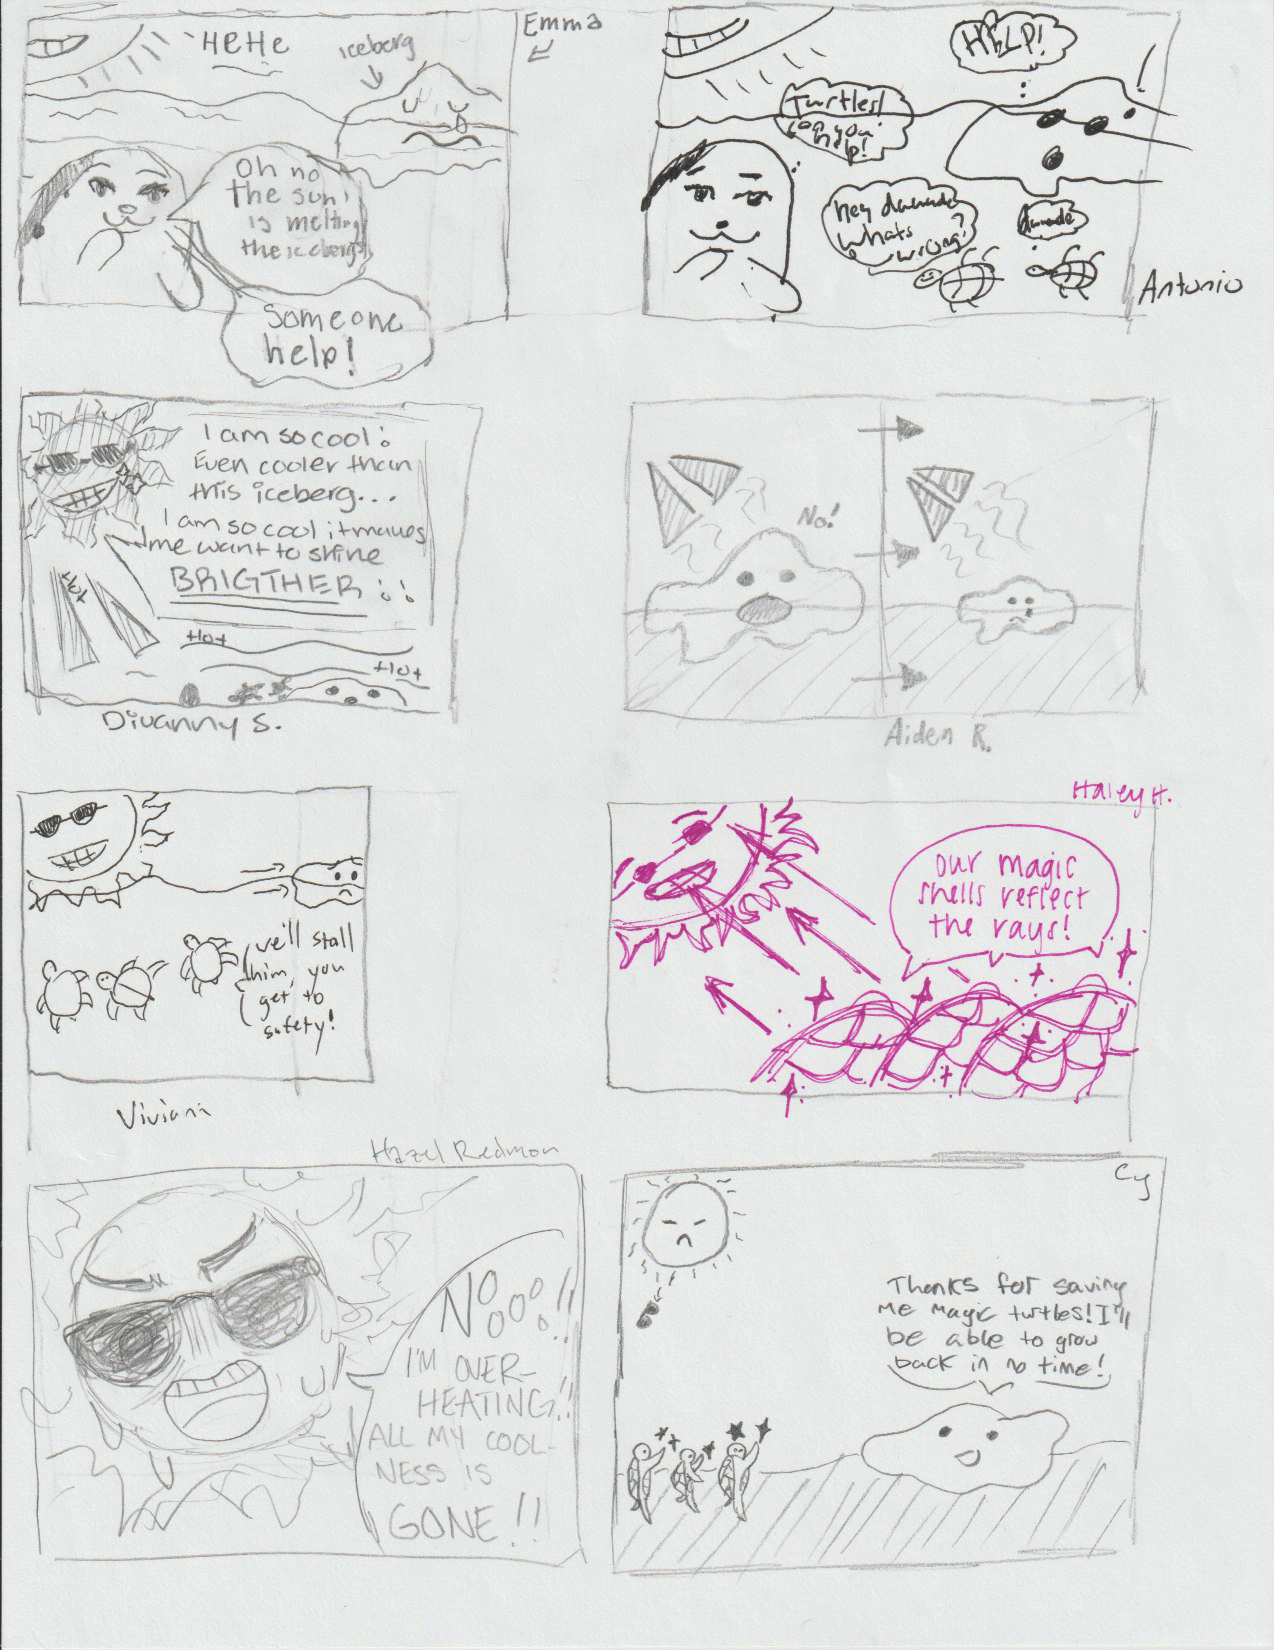 HeHe
iceberg
Emma
Oh no
the sun
is melting
the iceberg
Someone
help!
HELP!
Turtles!
can you
help!
hey duuude
whats
wrong?
duuude
Antonio
I am so cool!
Even cooler than
this iceberg...
I am so cool it makes
me want to shine
BRIGTHER!!
Hot
Hot
Hot
Divanny S.
No!
Aiden R.
we'll stall
him, you
get to
safety!
Viviana
Haley H.
our magic
shells reflect
the rays!
Hazel Redmon
Noooo!!
I'M OVER-
HEATING!!
ALL MY COOL-
NESS IS
GONE!!
Cy
Thanks for saving
me magic turtles! I'll
be able to grow
back in no time!